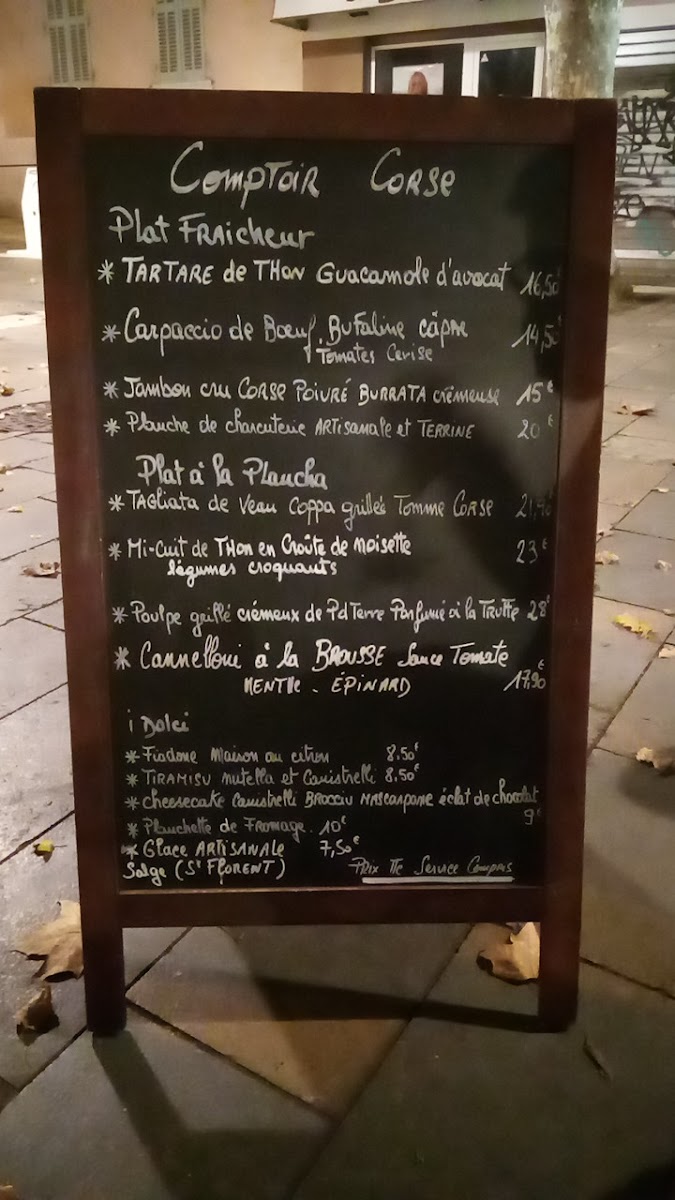 Comptoir Corse
Plat Fraicheur
* Tartare de Thon Guacamole d'avocat 16,50€
* Carpaccio de Bœuf, Bufaline câpre 14,50€
Tomates Cerise
* Jambon cru Corse Poivré Burrata crémeuse 15€
* Planche de charcuterie Artisanale et Terrine 20€
Plat à la Plancha
* Tagliata de Veau Coppa grillés Tomme Corse 21,90
* Mi-cuit de Thon en Croûte de noisette 23€
légumes croquants
* Poulpe grillé crémeux de Pd Terre Parfumé à la Truffe 28€
* Cannelloni à la Brousse Sauce Tomate
Menthe - Épinard 17,90€
i Dolci
* Fiadone Maison au citron 8,50€
* Tiramisu nutella et Canistrelli 8,50€
* cheesecake Canistrelli Brocciu Mascarpone éclat de chocolat
9€
* Planchette de Fromage. 10€
* Glace Artisanale 7,50€
Salge (St Florent) Prix TTC Service Compris